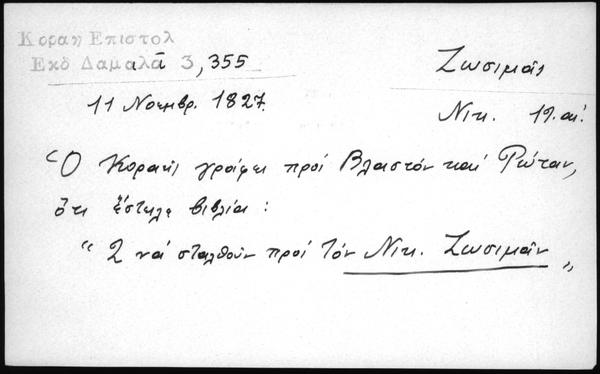 Κοραη Επιστολ
Εκδ Δαμαλᾶ 3, 355
Ζωσιμᾶς
11 Νοεμβρ. 1827.
Νικ. 19. αἰ.
Ὁ Κοραῆς γράφει πρὸς Βλαστόν καί Ρώταν,
ὅτι ἔστειλε βιβλία:
“ 2 νά σταλθοῦν πρός τόν Νικ. Ζωσιμᾶν „